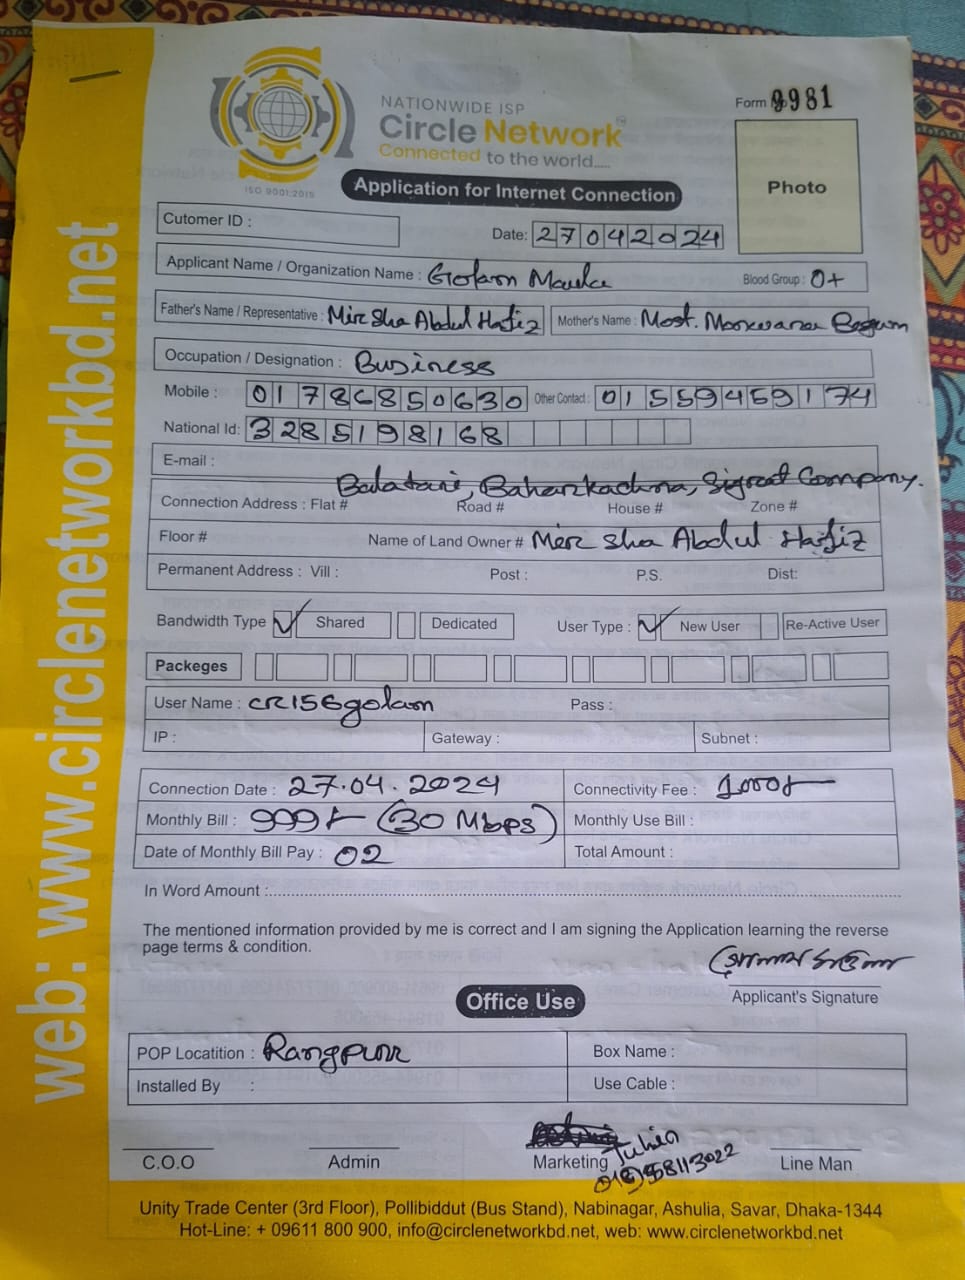 web: www.circlenetworkbd.net
ISO 9001:2015
NATIONWIDE ISP
Circle Network
Connected to the world.....
Application for Internet Connection
Form 9981
Photo
Cutomer ID :
Date: 27042024
Applicant Name / Organization Name : Golam Maula Blood Group : O+
Father's Name / Representative : Mir Sha Abdul Hafiz Mother's Name : Most. Begum
Occupation / Designation : Business
Mobile : 01786850630 Other Contact : 01559459174
National Id: 3285198168
E-mail :
Balatari, Baharkachna, Signal Company.
Connection Address : Flat # Road # House # Zone #
Floor # Name of Land Owner # Mir Sha Abdul Hafiz
Permanent Address : Vill : Post : P.S. Dist:
Bandwidth Type Shared Dedicated User Type : New User Re-Active User
Packeges
User Name : cr156golam Pass :
IP : Gateway : Subnet :
Connection Date : 27.04.2024 Connectivity Fee : 1000/-
Monthly Bill : 999/- (30 Mbps) Monthly Use Bill :
Date of Monthly Bill Pay : 02 Total Amount :
In Word Amount :
The mentioned information provided by me is correct and I am signing the Application learning the reverse
page terms & condition.
গোলাম মাউলা
Applicant's Signature
Office Use
POP Locatition : Rangpur Box Name :
Installed By : Use Cable :
C.O.O Admin Marketing Line Man
Unity Trade Center (3rd Floor), Pollibiddut (Bus Stand), Nabinagar, Ashulia, Savar, Dhaka-1344
Hot-Line: + 09611 800 900, info@circlenetworkbd.net, web: www.circlenetworkbd.net